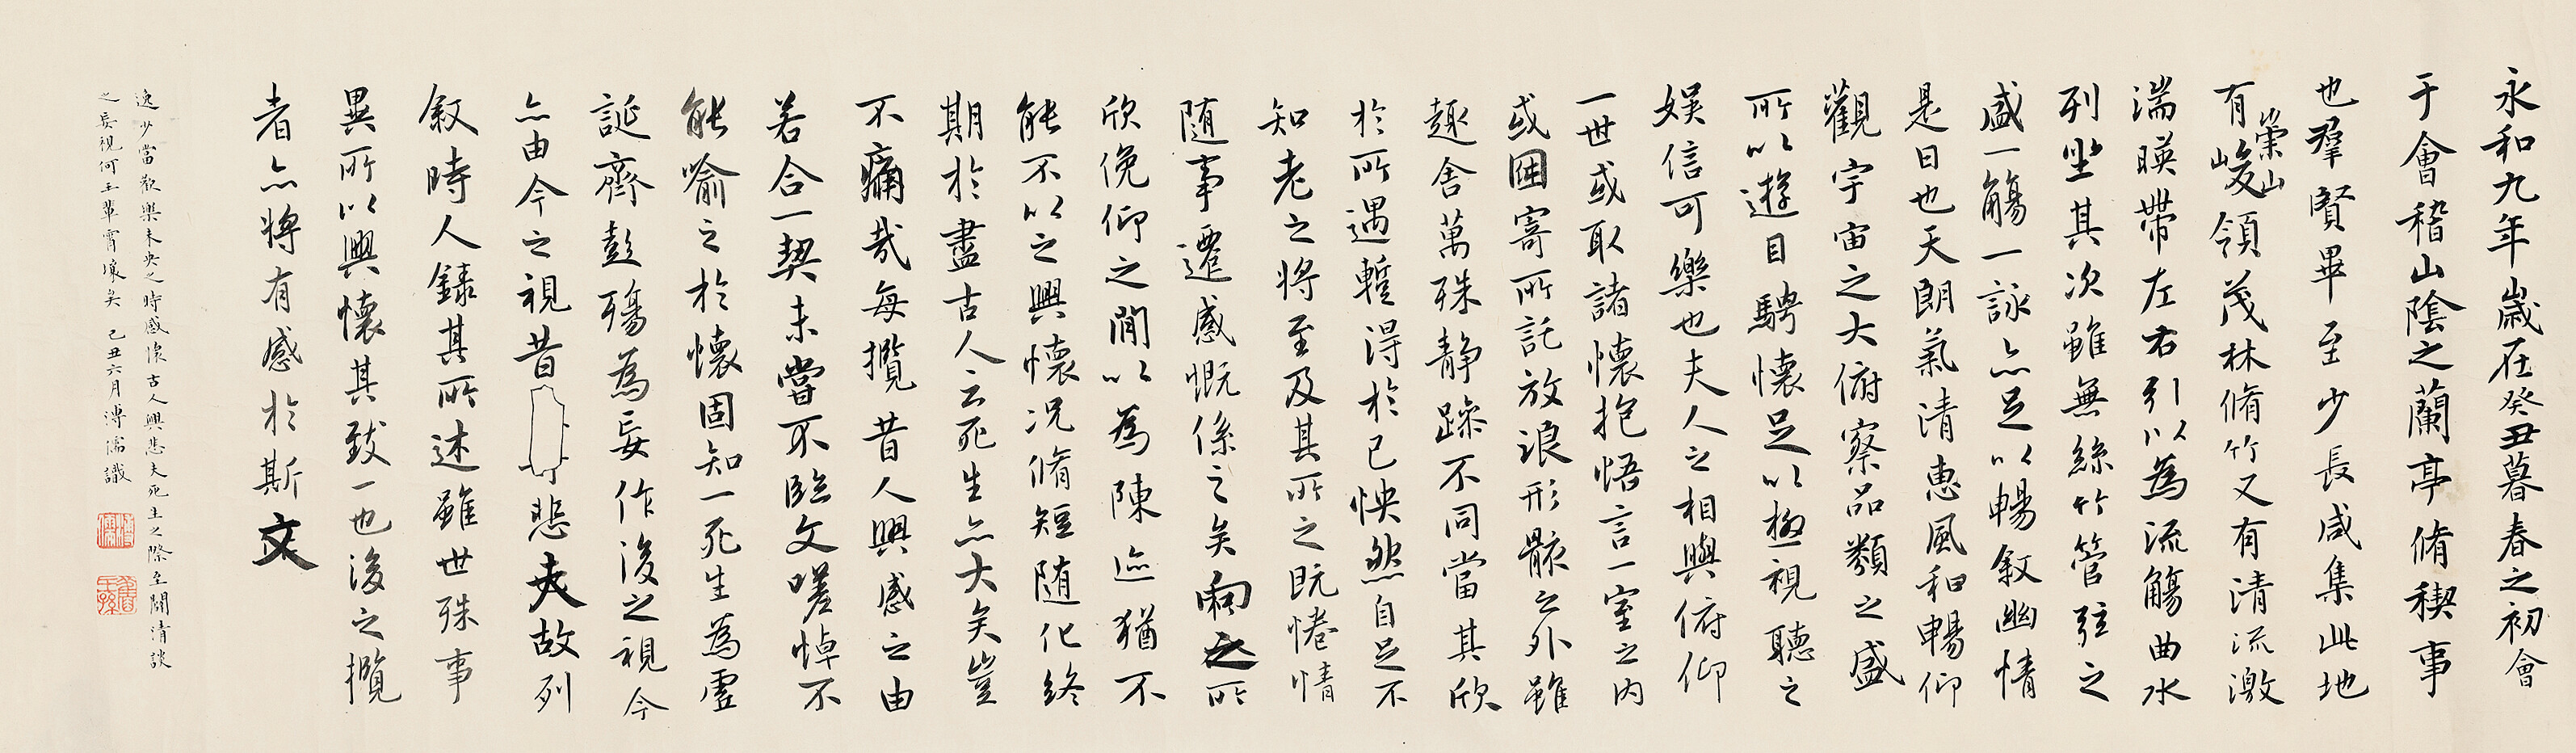 永和九年歲在癸丑暮春之初會
于會稽山陰之蘭亭脩稧事
也羣賢畢至少長咸集此地
有崇山峻領茂林脩竹又有清流激
湍暎帶左右引以為流觴曲水
列坐其次雖無絲竹管弦之
盛一觴一詠亦足以暢敘幽情
是日也天朗氣清惠風和暢仰
觀宇宙之大俯察品類之盛
所以遊目騁懷足以極視聽之
娛信可樂也夫人之相與俯仰
一世或取諸懷抱悟言一室之內
或因寄所託放浪形骸之外雖
趣舍萬殊靜躁不同當其欣
於所遇蹔得於己怏然自足不
知老之將至及其所之既惓情
隨事遷感慨係之矣向之所
欣俛仰之閒以為陳迹猶不
能不以之興懷況脩短隨化終
期於盡古人云死生亦大矣豈
不痛哉每攬昔人興感之由
若合一契未嘗不臨文嗟悼不
能喻之於懷固知一死生為虛
誕齊彭殤為妄作後之視今
亦由今之視昔悲夫故列
敘時人錄其所述雖世殊事
異所以興懷其致一也後之攬
者亦將有感於斯文
逸少當歡樂未央之時感懷古人興悲夫死生之際至關清談
之妄視何王輩霄壤矣 己丑六月溥儒識
溥儒
舊王孫